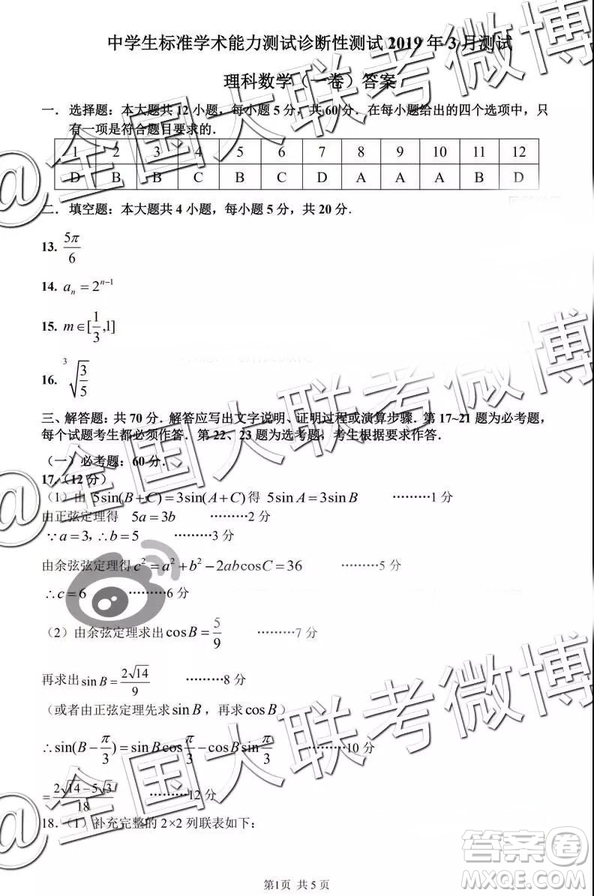 中学生标准学术能力测试诊断性测试 2019 年 3 月测试
理科数学（一卷）答案
一．选择题：本大题共 12 小题，每小题 5 分，共 60 分．在每小题给出的四个选项中，只
有一项是符合题目要求的．
1 2 3 4 5 6 7 8 9 10 11 12
D B B C B C D A A A B D
二．填空题：本大题共 4 小题，每小题 5 分，共 20 分．
13. 5π/6
14. aₙ = 2ⁿ⁻¹
15. m∈[1/3,1]
16. ³√(3/5)
三、解答题：共 70 分．解答应写出文字说明、证明过程或演算步骤．第 17~21 题为必考题，
每个试题考生都必须作答．第 22、23 题为选考题，考生根据要求作答．
（一）必考题：60 分．
17.（12 分）
（1）由 5sin(B+C)=3sin(A+C)得 5sinA=3sinB ………1 分
由正弦定理得 5a=3b ………2 分
∵a=3,∴b=5 ………3 分
由余弦弦定理得c²=a²+b²-2abcosC=36 ………5 分
∴c=6 ………6 分
（2）由余弦定理求出cosB=5/9 ………7 分
再求出sinB=2√14/9 ………8 分
（或者由正弦定理先求sinB，再求cosB）
∴sin(B-π/3)=sinBcosπ/3-cosBsinπ/3 ………10 分
=(2√14-5√3)/18 ………12 分
18.（1）补充完整的 2×2 列联表如下：
第1页 共 5 页
@全国大联考微博
答案圈
MXQE.COM